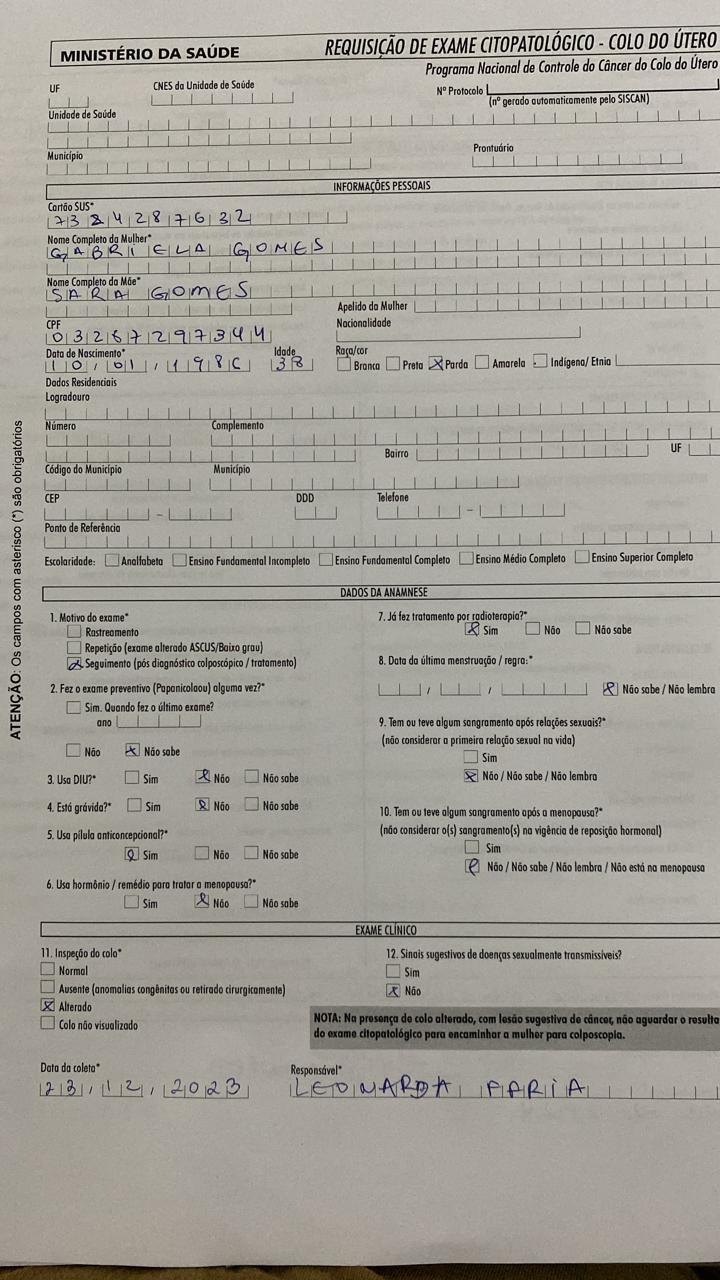 MINISTÉRIO DA SAÚDE
REQUISIÇÃO DE EXAME CITOPATOLÓGICO - COLO DO ÚTERO
Programa Nacional de Controle do Câncer do Colo do Útero
UF CNES da Unidade de Saúde Nº Protocolo
(nº gerado automaticamente pelo SISCAN)
Unidade de Saúde
Município Prontuário
INFORMAÇÕES PESSOAIS
Cartão SUS*
7384287632
Nome Completo da Mulher*
GABRIELA GOMES
Nome Completo da Mãe*
SARA GOMES
Apelido da Mulher
CPF Nacionalidade
03287297344
Data de Nascimento* Idade Raça/cor
10/01/198 38 Branca Preta X Parda Amarela Indígena/ Etnia
Dados Residenciais
Logradouro
Número Complemento
Bairro UF
Código do Município Município
CEP DDD Telefone
Ponto de Referência
Escolaridade: Analfabeta Ensino Fundamental Incompleto Ensino Fundamental Completo Ensino Médio Completo Ensino Superior Completo
ATENÇÃO: Os campos com asterisco (*) são obrigatórios
DADOS DA ANAMNESE
1. Motivo do exame*
Rastreamento
Repetição (exame alterado ASCUS/Baixo grau)
X Seguimento (pós diagnóstico colposcópico / tratamento)
2. Fez o exame preventivo (Papanicolaou) alguma vez?*
Sim. Quando fez o último exame?
ano
Não X Não sabe
3. Usa DIU?* Sim X Não Não sabe
4. Está grávida?* Sim X Não Não sabe
5. Usa pílula anticoncepcional?*
X Sim Não Não sabe
6. Usa hormônio / remédio para tratar a menopausa?*
Sim X Não Não sabe
7. Já fez tratamento por radioterapia?*
X Sim Não Não sabe
8. Data da última menstruação / regra:*
/ / X Não sabe / Não lembra
9. Tem ou teve algum sangramento após relações sexuais?*
(não considerar a primeira relação sexual na vida)
Sim
X Não / Não sabe / Não lembra
10. Tem ou teve algum sangramento após a menopausa?*
(não considerar o(s) sangramento(s) na vigência de reposição hormonal)
Sim
X Não / Não sabe / Não lembra / Não está na menopausa
EXAME CLÍNICO
11. Inspeção do colo*
Normal
Ausente (anomalias congênitas ou retirado cirurgicamente)
X Alterado
Colo não visualizado
12. Sinais sugestivos de doenças sexualmente transmissíveis?
Sim
X Não
NOTA: Na presença de colo alterado, com lesão sugestiva de câncer, não aguardar o resulta
do exame citopatológico para encaminhar a mulher para colposcopia.
Data da coleta* Responsável*
23/12/2023 LEONARDA FARIA